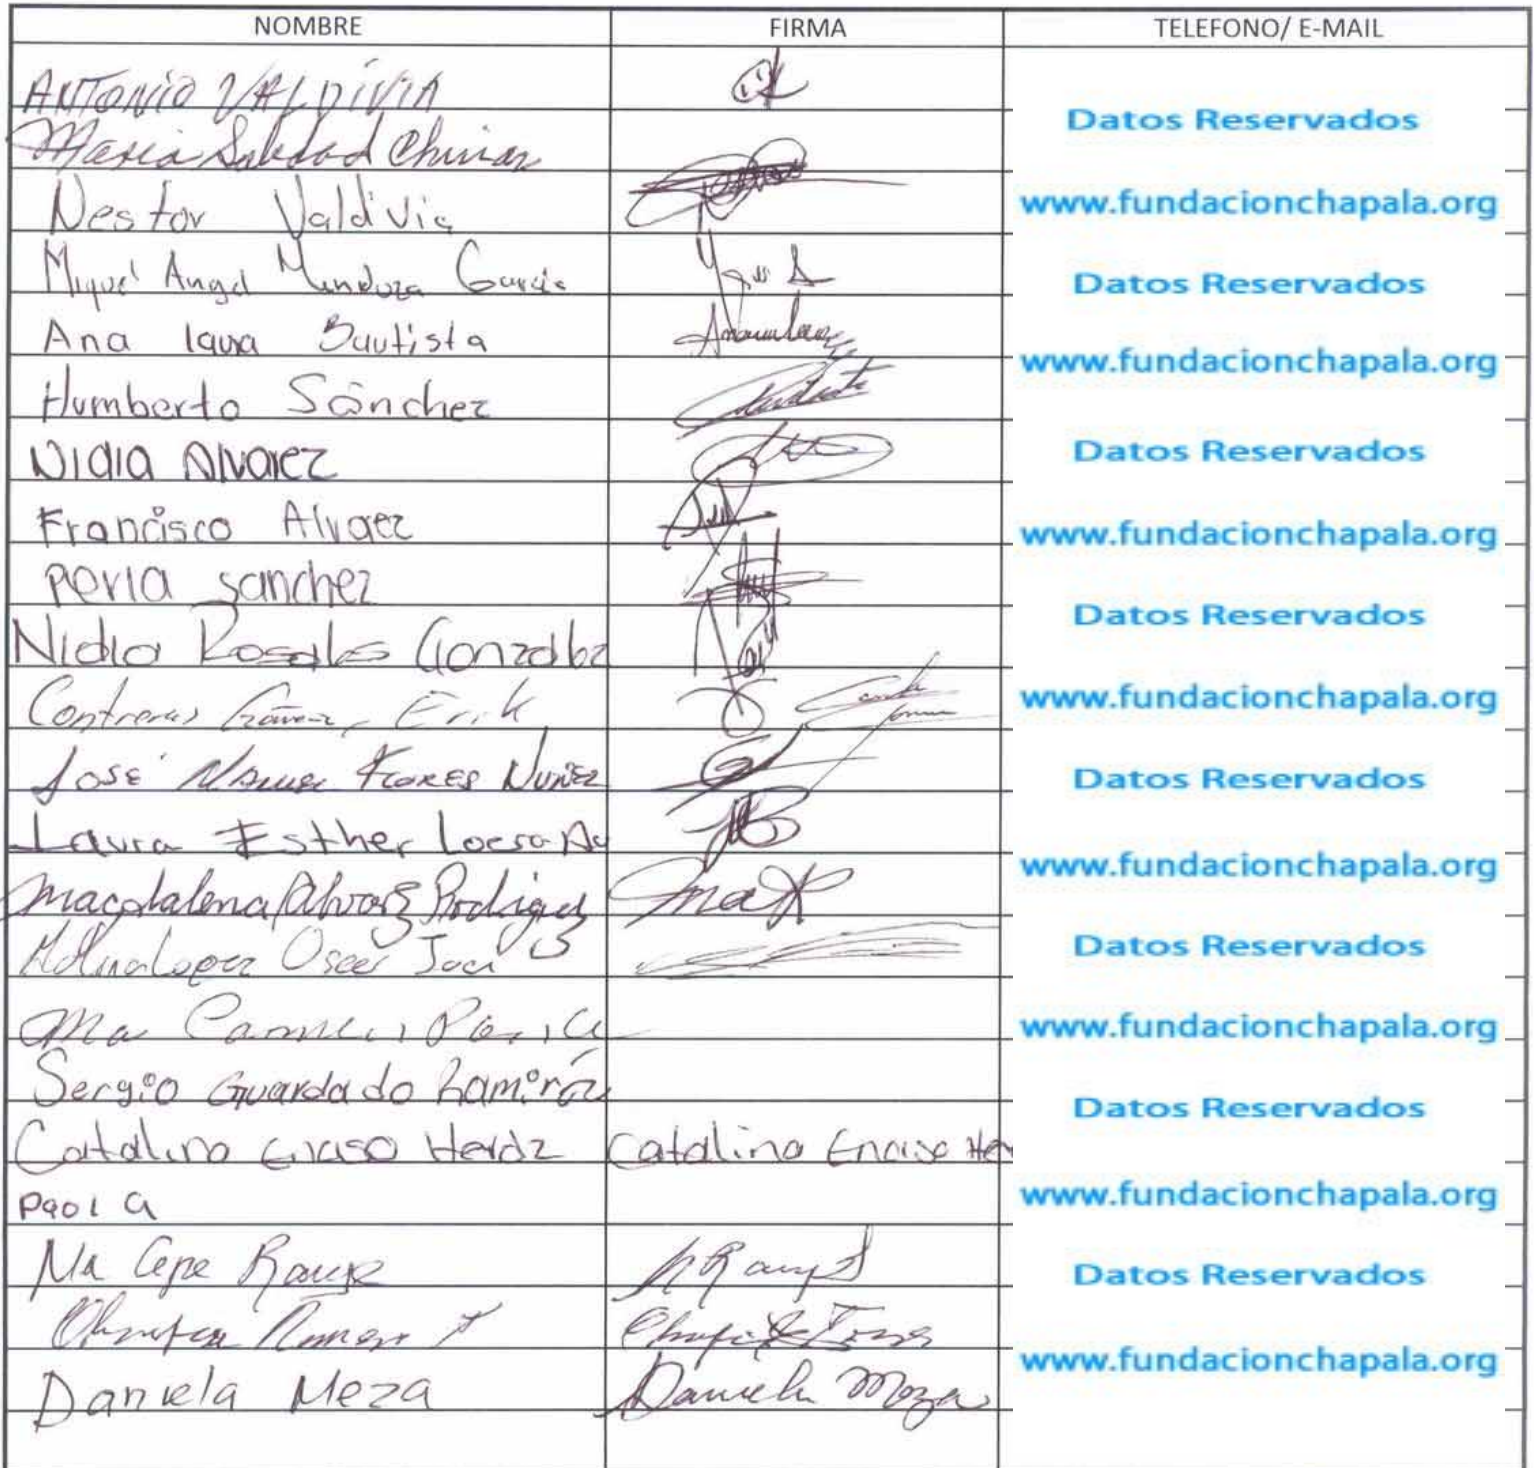 NOMBRE FIRMA TELEFONO/ E-MAIL
ANTONIO VALDIVIA
Datos Reservados
Maria Soledad
Nestor Valdivia
www.fundacionchapala.org
Miguel Angel Mendoza Garcia
Datos Reservados
Ana laura Bautista
www.fundacionchapala.org
Humberto Sánchez
Nidia Alvarez
Datos Reservados
Francisco Alvaez
www.fundacionchapala.org
Perla Sanchez
Datos Reservados
Nidia Rosales Gonzalez
Contreras Erik
www.fundacionchapala.org
José Manuel Flores Nuñez
Datos Reservados
Laura Esther
www.fundacionchapala.org
Magdalena Alvarez Rodriguez
Datos Reservados
Molina Lopez Oscar
Ma
www.fundacionchapala.org
Sergio Guardado Ramiréz
Datos Reservados
Catalina Herdz Catalina Enciso
Paola
www.fundacionchapala.org
Ma
Datos Reservados
www.fundacionchapala.org
Daniela Meza Daniela Meza